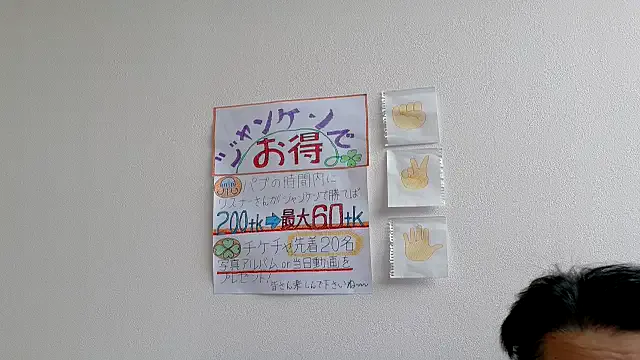 ジャンケンで
お得
パブの時間内に
リスナーさんがジャンケンで勝てば
200tk⇨最大60tk
チケチャ先着20名
写真アルバムor当日動画を
プレゼント!
皆さん楽しんで下さいねー